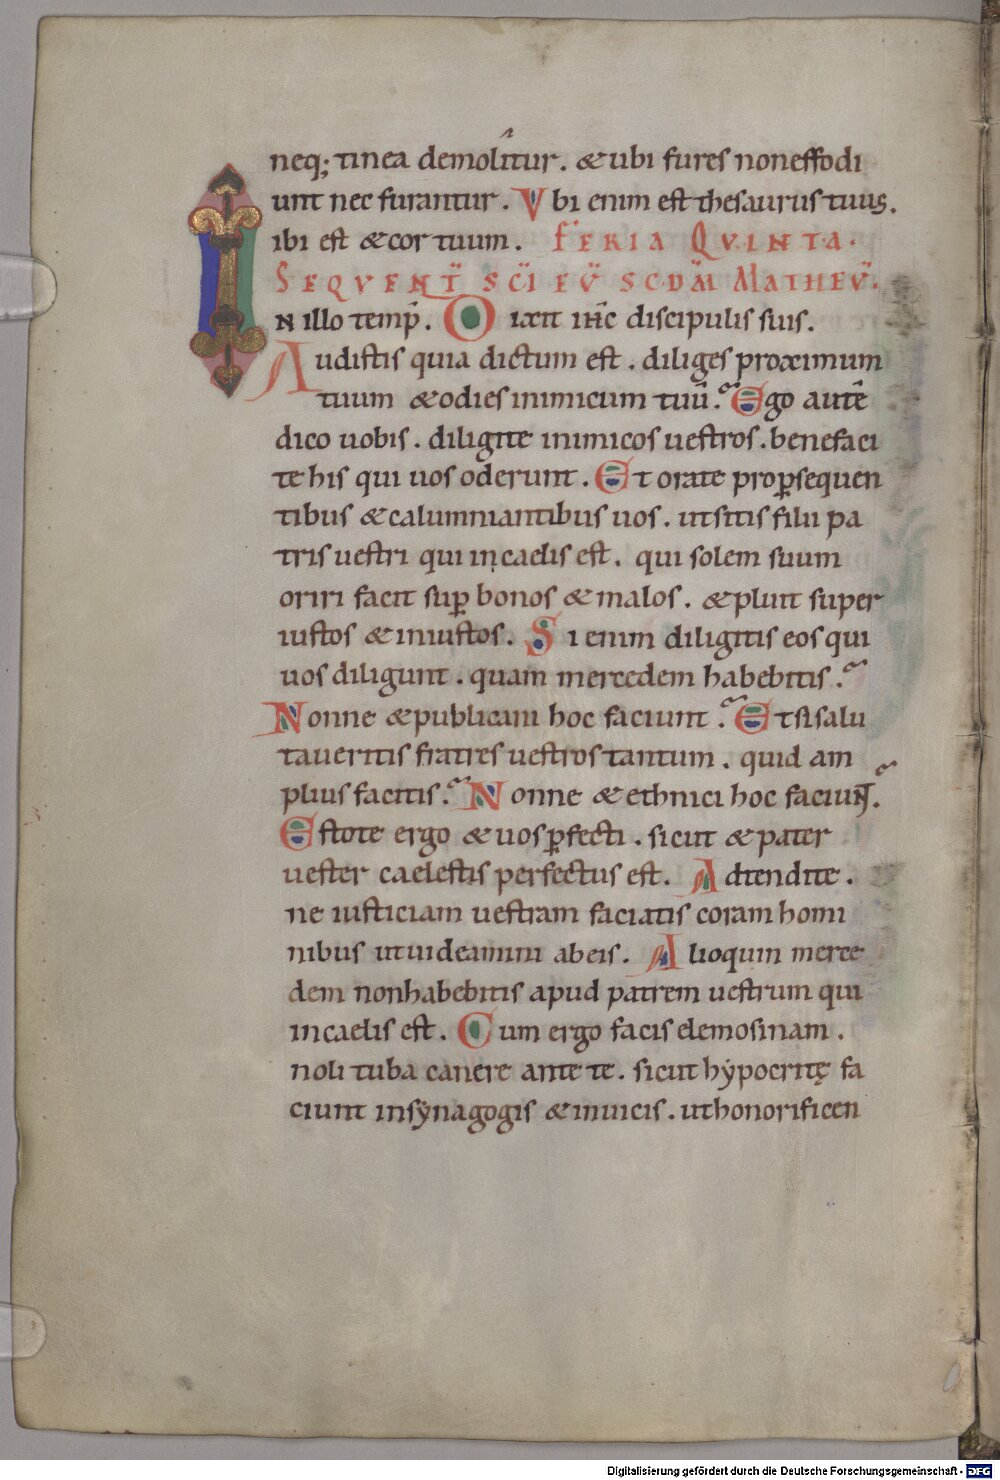 neq; tinea demolitur. & ubi fures non effodi
unt nec furantur. Vbi enim est thesaurus tuus.
ibi est & cor tuum. FERIA QVINTA.
SEQVENT̄ SC̄I EV̄ SCDM̄ MATHEV̄.
IN illo temp̄. Dixit ih̄c discipulis suis.
Audistis quia dictum est. diliges proximum
tuum & odies inimicum tuū. Ego autē
dico uobis. diligite inimicos uestros. benefaci
te his qui uos oderunt. Et orate pro p̱sequen
tibus & calumniantibus uos. ut sitis filii pa
tris uestri qui in caelis est. qui solem suum
oriri facit sup̱ bonos & malos. & pluit super
iustos & iniustos. Si enim diligitis eos qui
uos diligunt. quam mercedem habebitis.
Nonne & publicani hoc faciunt. Et si salu
taveritis fratres uestros tantum. quid am
plius facitis. Nonne & ethnici hoc faciunt.
Estote ergo & uos p̱fecti. sicut & pater
uester caelestis perfectus est. Adtendite.
ne iusticiam uestram faciatis coram homi
nibus ut uideamini ab eis. Alioquin merce
dem non habebitis apud patrem uestrum qui
in caelis est. Cum ergo facis elemosinam.
noli tuba canere ante te. sicut hẏpocritę fa
ciunt in sẏnagogis & in uicis. ut honorificen
Digitalisierung gefördert durch die Deutsche Forschungsgemeinschaft - DFG